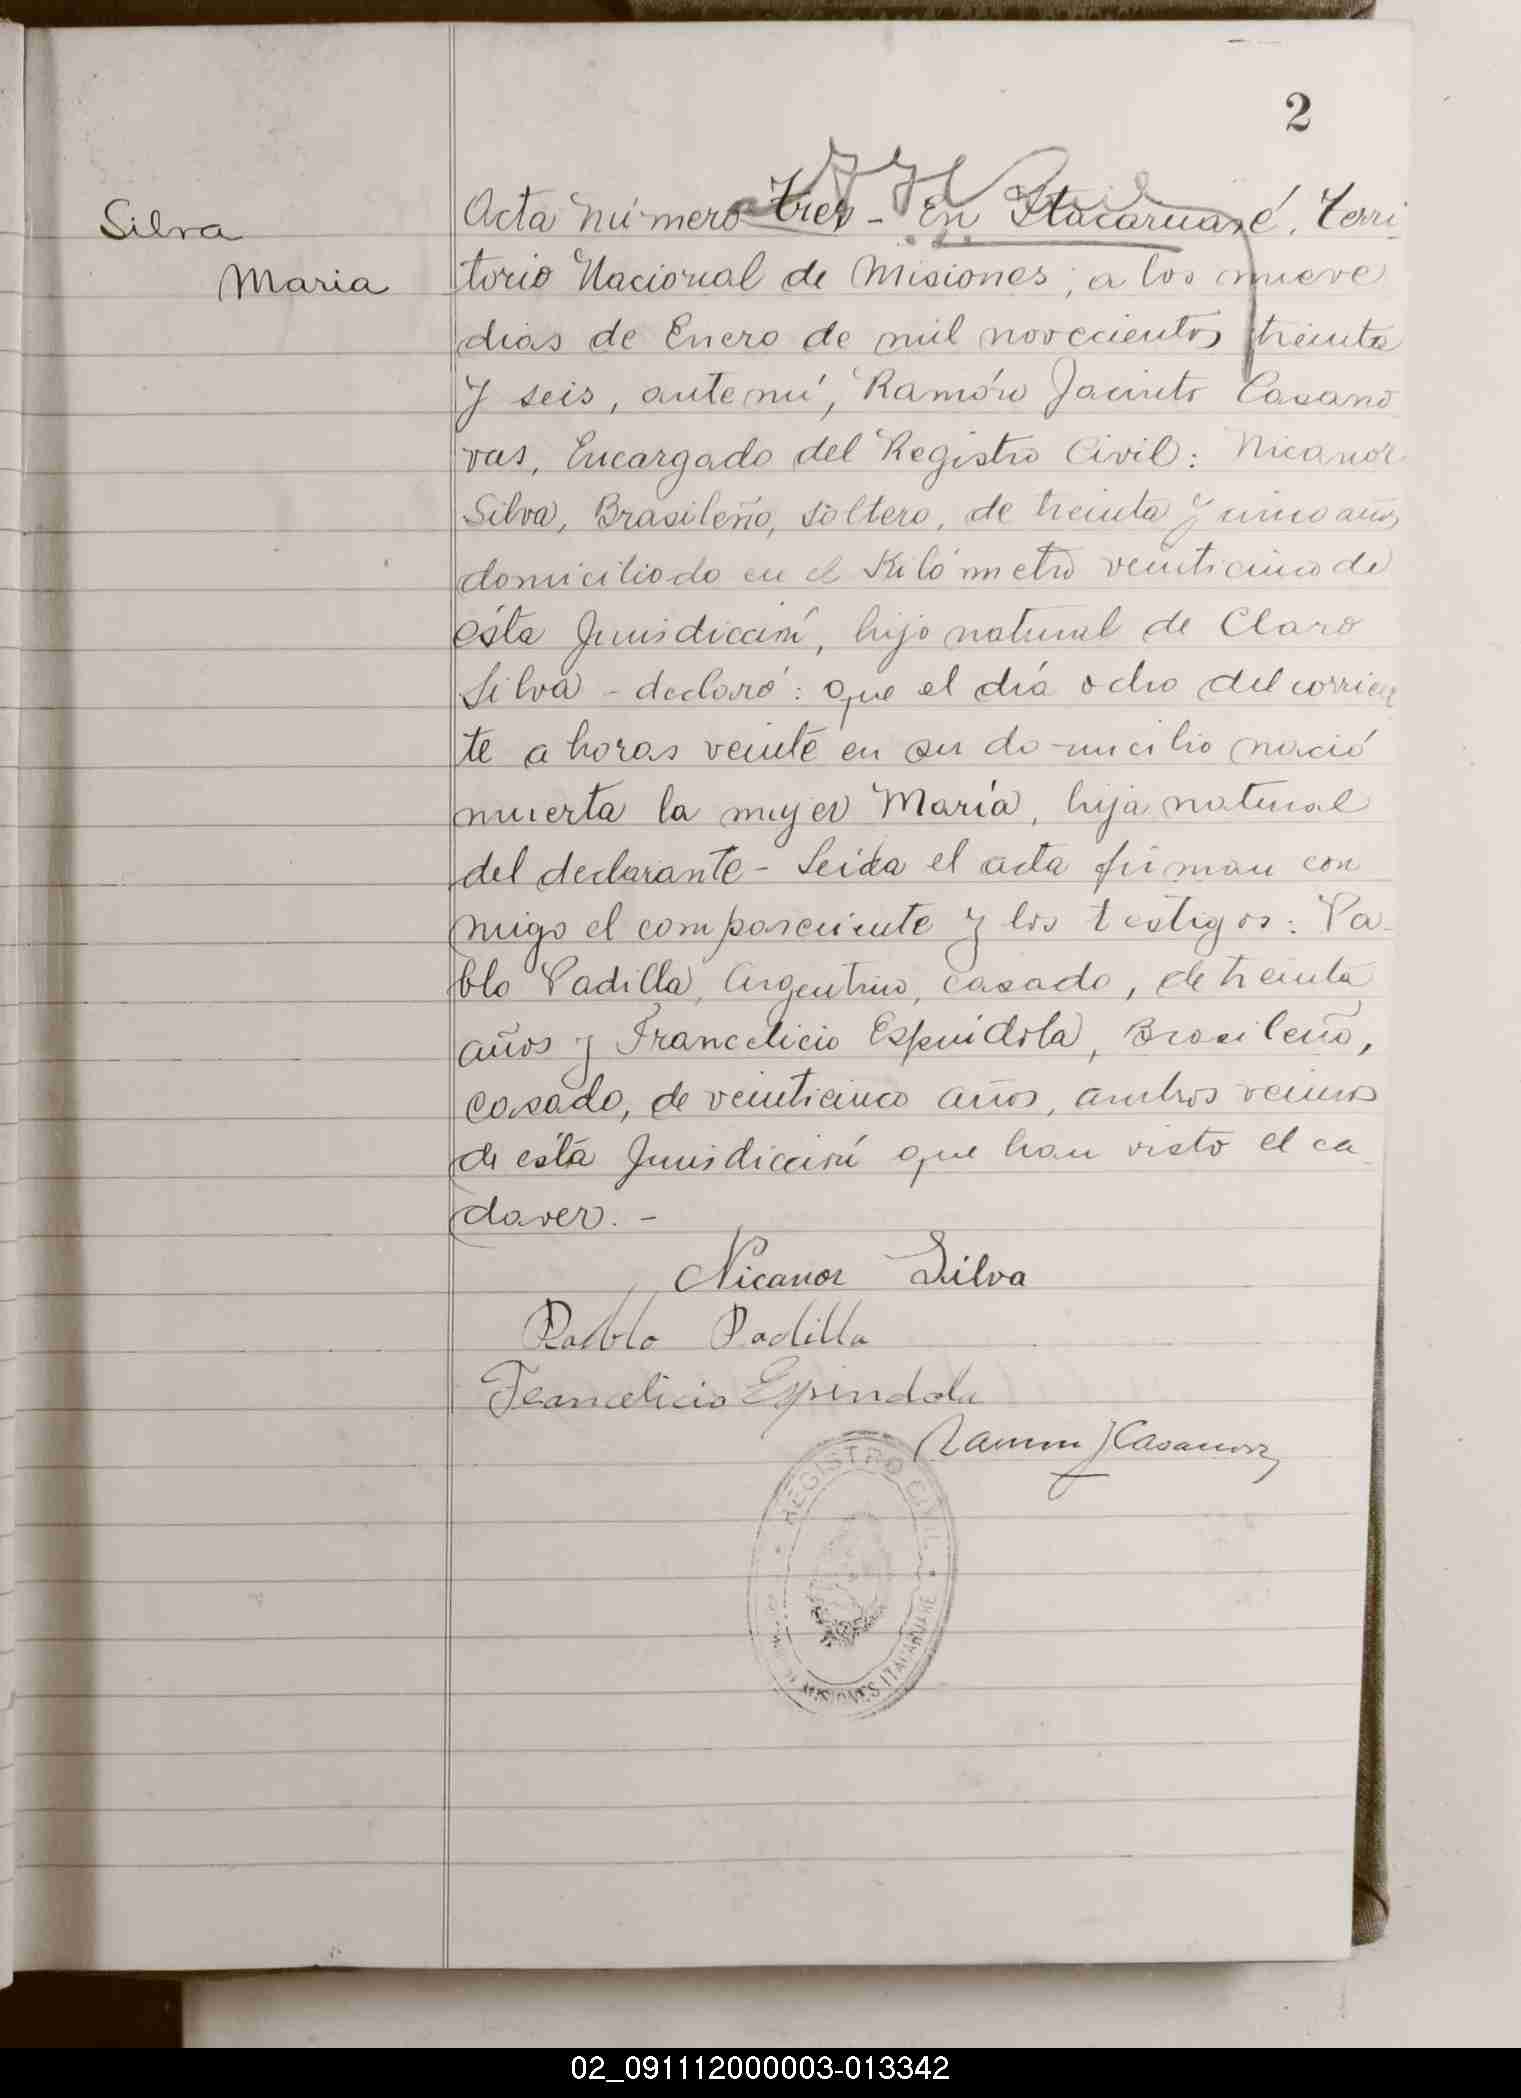 2
Silva
Maria
Acta número tres - En Itacaruaré, Terri-
torio Nacional de Misiones, a los nueve
dias de Enero de mil novecientos treinta
y seis, ante mí, Ramón Jacinto Casano-
vas, Encargado del Registro Civil: Nicanor
Silva, Brasileño, soltero, de treinta y cinco años
domiciliado en el Kilómetro veinticinco de
ésta Jurisdicción, hijo natural de Claro
Silva - declaró: que el día ocho del corrien
te a horas veinte en su domicilio nació
muerta la mujer María, hija natural
del declarante - Leida el acta firman con
migo el compareciente y los testigos: Pa-
blo Padilla, Argentino, casado, de treinta
años y Francelicio Espindola, Brasileño,
casado, de veinticinco años, ambos vecinos
de ésta Jurisdicción que han visto el ca-
daver. -
Nicanor Silva
Pablo Padilla
Francelicio Espindola
Ramon J Casanovas
REGISTRO CIVIL
MISIONES ITACARUARE
02_091112000003-013342